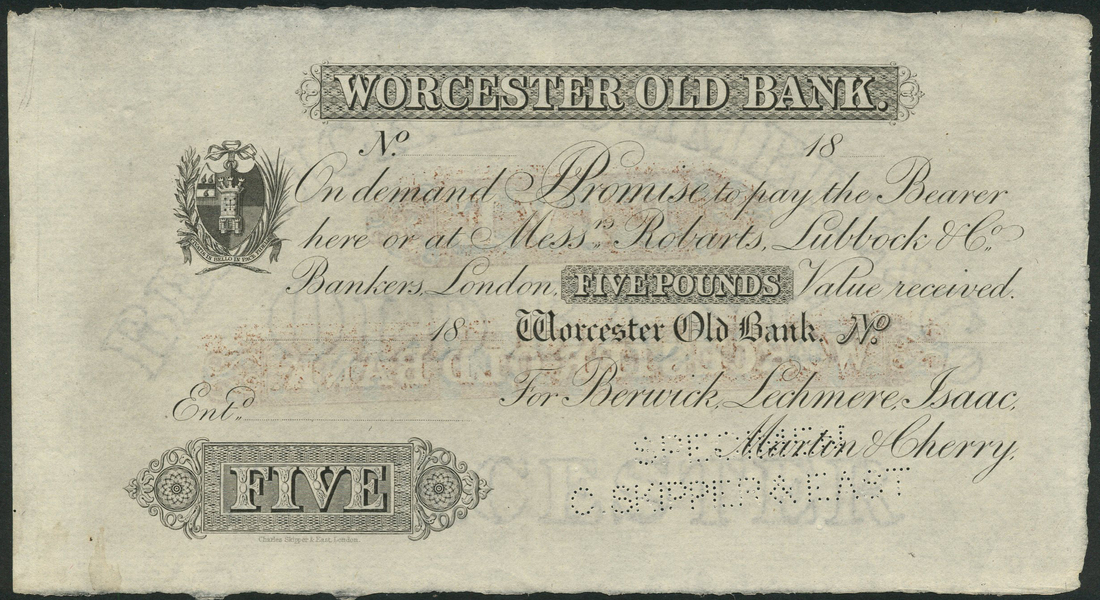 WORCESTER OLD BANK.
No. 18
On demand I Promise to pay the Bearer
here or at Messrs. Robarts, Lubbock & Co.
Bankers, London, FIVE POUNDS Value received.
18 Worcester Old Bank, No.
Entd. For Berwick, Lechmere, Isaac,
Martin & Cherry,
SPECIMEN
C. SKIPPER & EAST
FIVE
Charles Skipper & East, London.